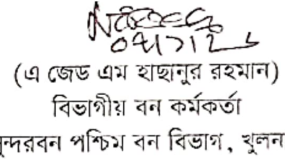 (এ জেড এম হাছানুর রহমান)
বিভাগীয় বন কর্মকর্তা
সুন্দরবন পশ্চিম বন বিভাগ, খুলনা